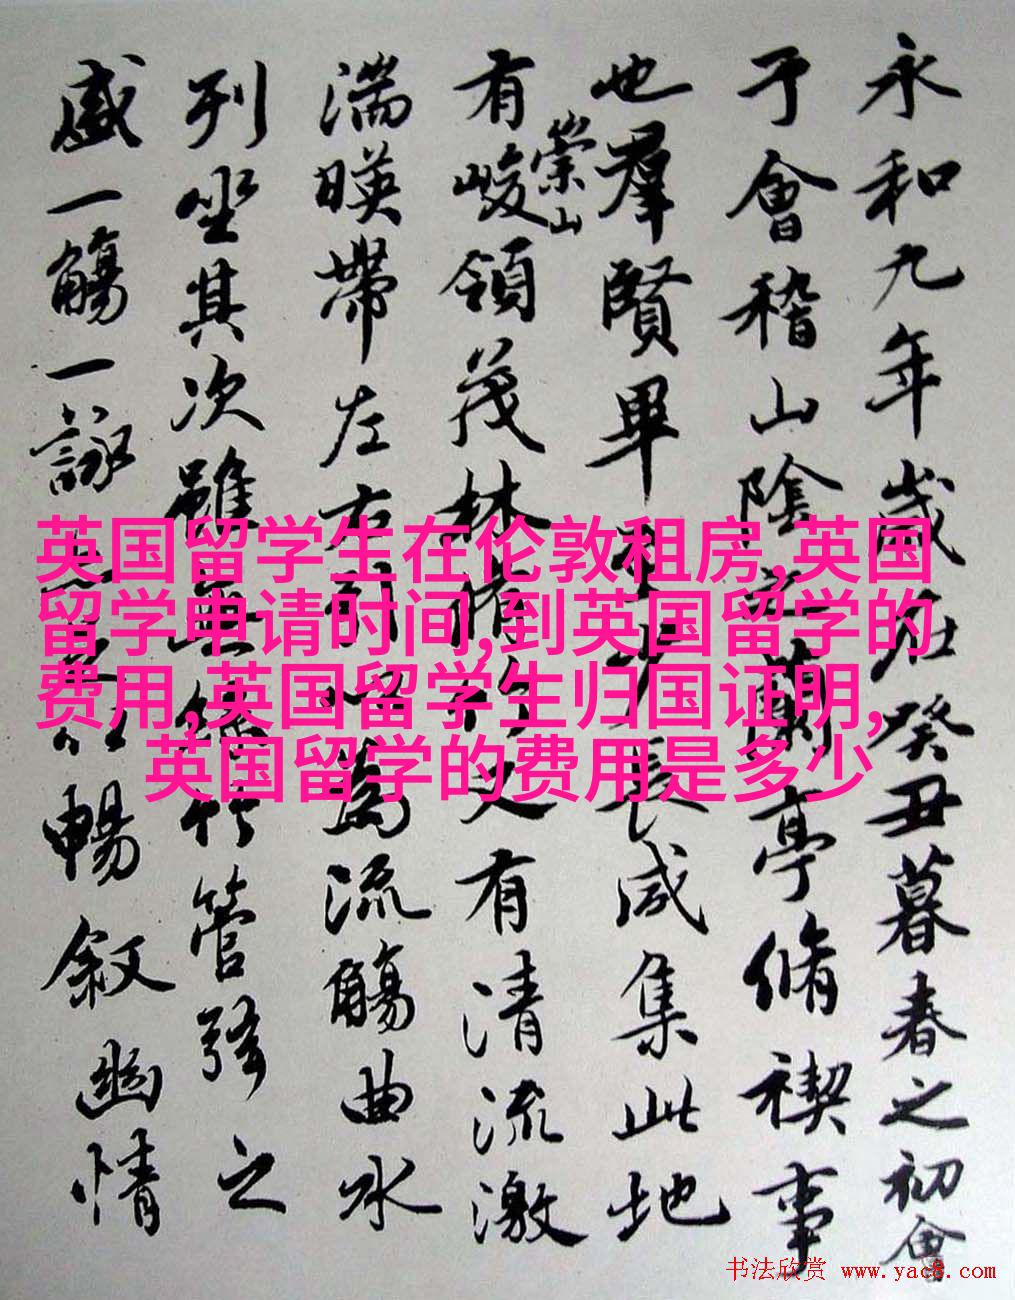 永和九年歲在癸丑暮春之初會
于會稽山陰之蘭亭脩禊事
也羣賢畢至少長咸集此地
有崇山峻領茂林脩竹又有清流激
湍暎帶左右引以為流觴曲水
列坐其次雖無絲竹管弦之
盛一觴一詠亦足以暢敘幽情
英国留学生在伦敦租房,英国
留学申请时间,到英国留学的
费用,英国留学生归国证明,
英国留学的费用是多少
书法欣赏 www.yac8.com